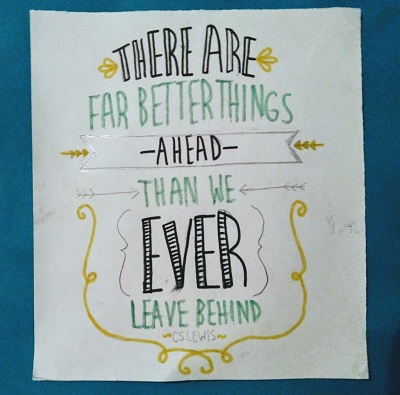 THERE ARE
FAR BETTER THINGS
-AHEAD-
THAN WE
EVER
LEAVE BEHIND
~CS LEWIS~